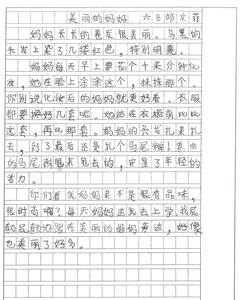 美丽的妈妈 六8邱文菲
妈妈长长的卷发很美丽。乌黑的
头发上染了几缕红色，特别明亮。
妈妈每天早上要花个十来分钟化
妆，她在脸上涂涂这个，抹抹那个。
你别说化妆后的妈妈就更好看。衣服
都要换好几套呢。她站在衣橱前比比
这套，再比那套。妈妈的头发扎来扎
去，到了最后还是扎个马尾辫，走
的马尾甩来甩去的，更显了年轻的
活力。
你们看我妈妈是不是很有品味，
很时尚啊？每天妈妈送我去上学，我屁
颠屁颠地跟在美丽的妈妈身边，好像
也美丽了好多。